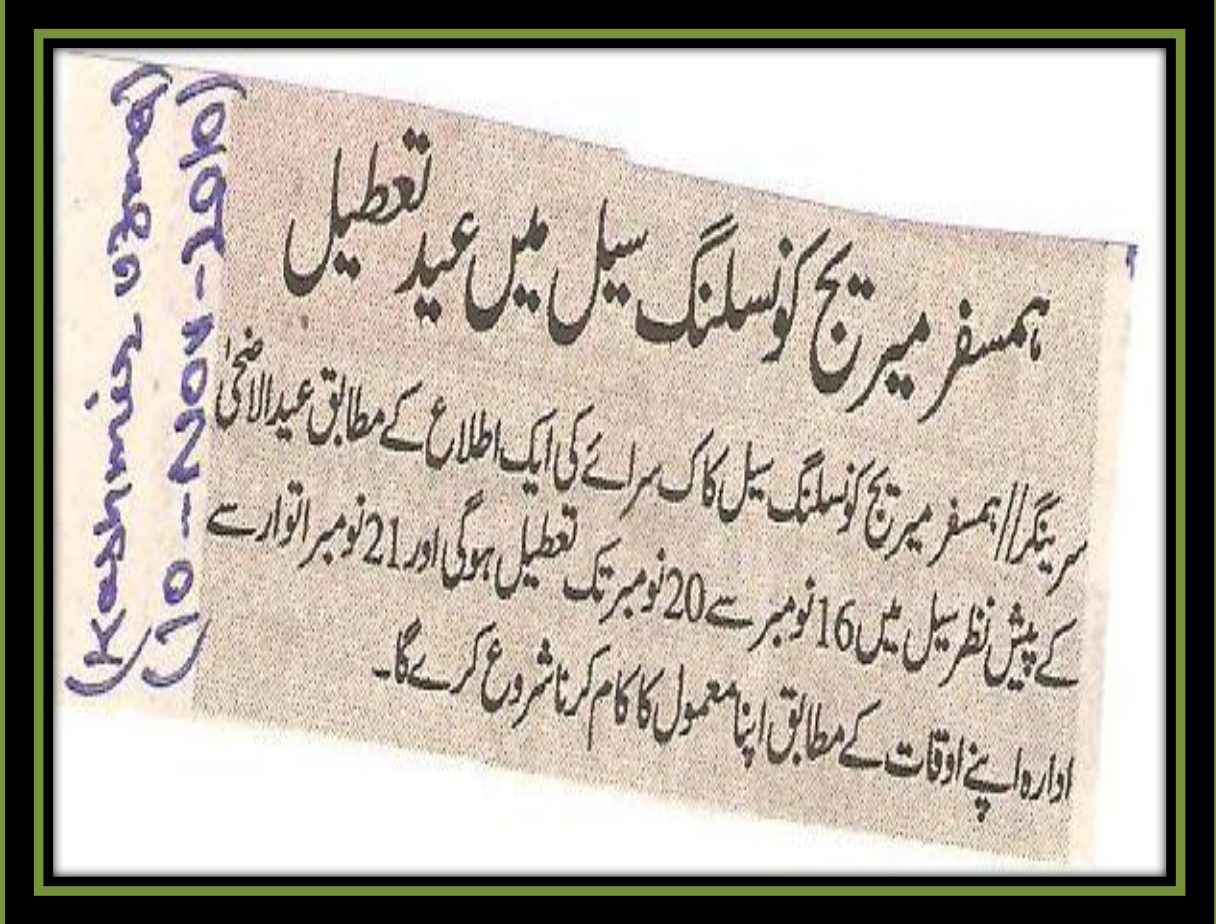 ہمسفر میریج کونسلنگ سیل میں عید تعطیل
سرینگر//ہمسفر میریج کونسلنگ سیل کاک سرائے کی ایک اطلاع کے مطابق عیدالاضحیٰ
کے پیش نظر سیل میں 16 نومبر سے 20 نومبر تک تعطیل ہوگی اور 21 نومبر اتوار سے
ادارہ اپنے اوقات کے مطابق اپنا معمول کا کام کرنا شروع کرے گا۔
(Kashmir Uzma)
(10-Nov-2010)